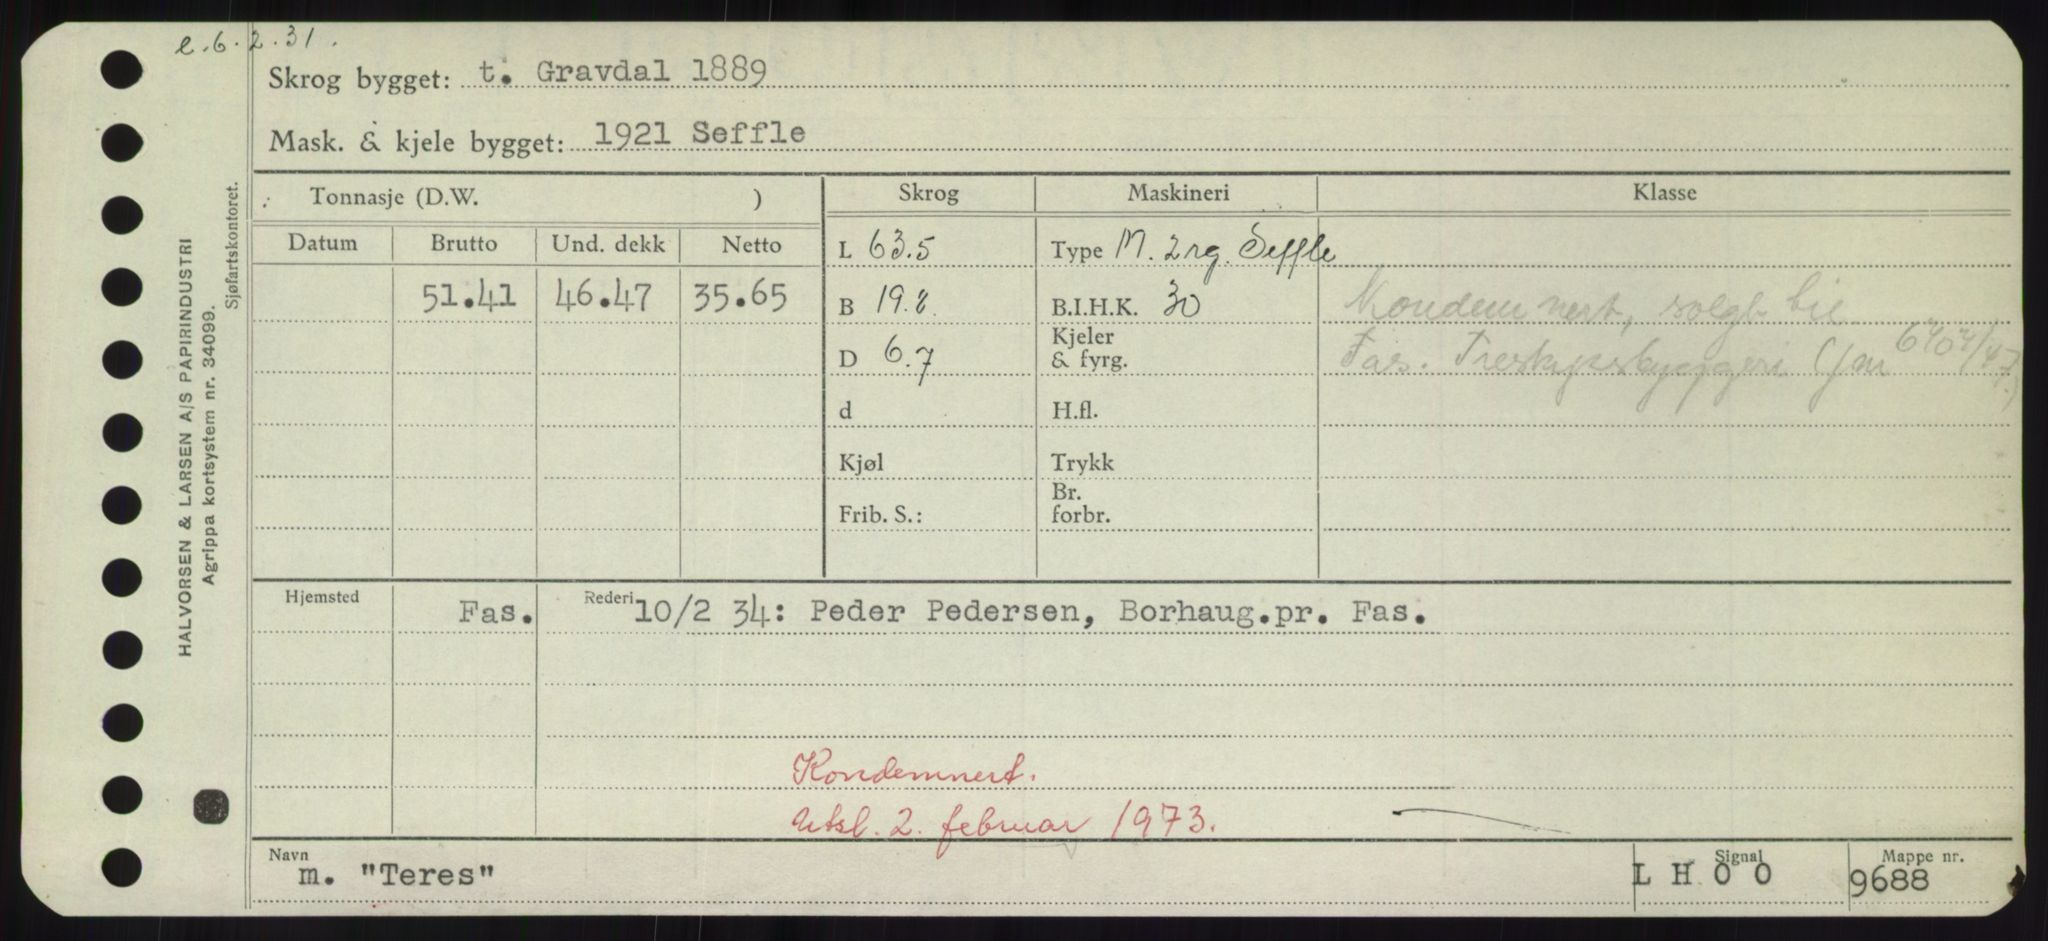 e.6.2.31.
Skrog bygget: t. Gravdal 1889
Mask. & kjele bygget: 1921 Seffle
Tonnasje (D.W. )
Skrog
Maskineri
Klasse
Datum
Brutto
Und. dekk
Netto
51.41
46.47
35.65
L 63.5
B 19.8
D 6.7
d
Kjøl
Frib. S.:
Type M. 2 rg. Seffle
B.I.H.K. 30
Kjeler
& fyrg.
H.fl.
Trykk
Br.
forbr.
Kondemnert, solgt
Fas. Treskipsbyggeri
Hjemsted
Fas.
Rederi
10/2 34: Peder Pedersen, Borhaug.pr. Fas.
Kondemnert.
Utsl. 2. februar 1973.
Navn
m. "Teres"
Signal
L H O O
Mappe nr.
9688
HALVORSEN & LARSEN A/S PAPIRINDUSTRI
Agrippa kortsystem nr. 34099.
Sjøfartskontoret.